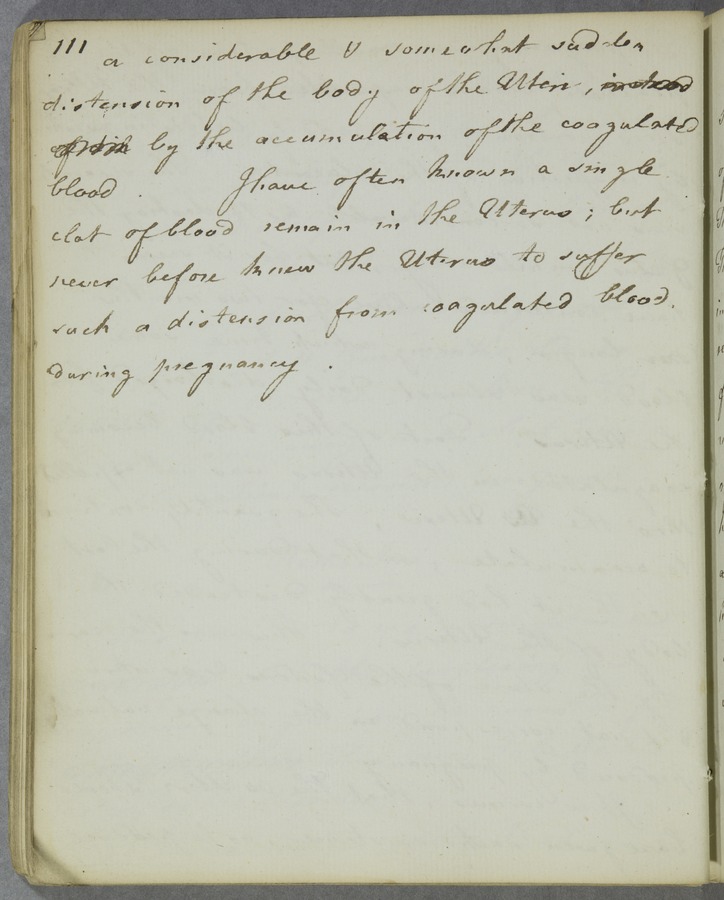 111 a considerable & somewhat sudden
distension of the body of the Uteri,
by the accumulation of the coagulated
blood. I have often known a single
clot of blood remain in the Uterus; but
never before knew the Uterus to suffer
such a distension from coagulated blood.
during pregnancy.